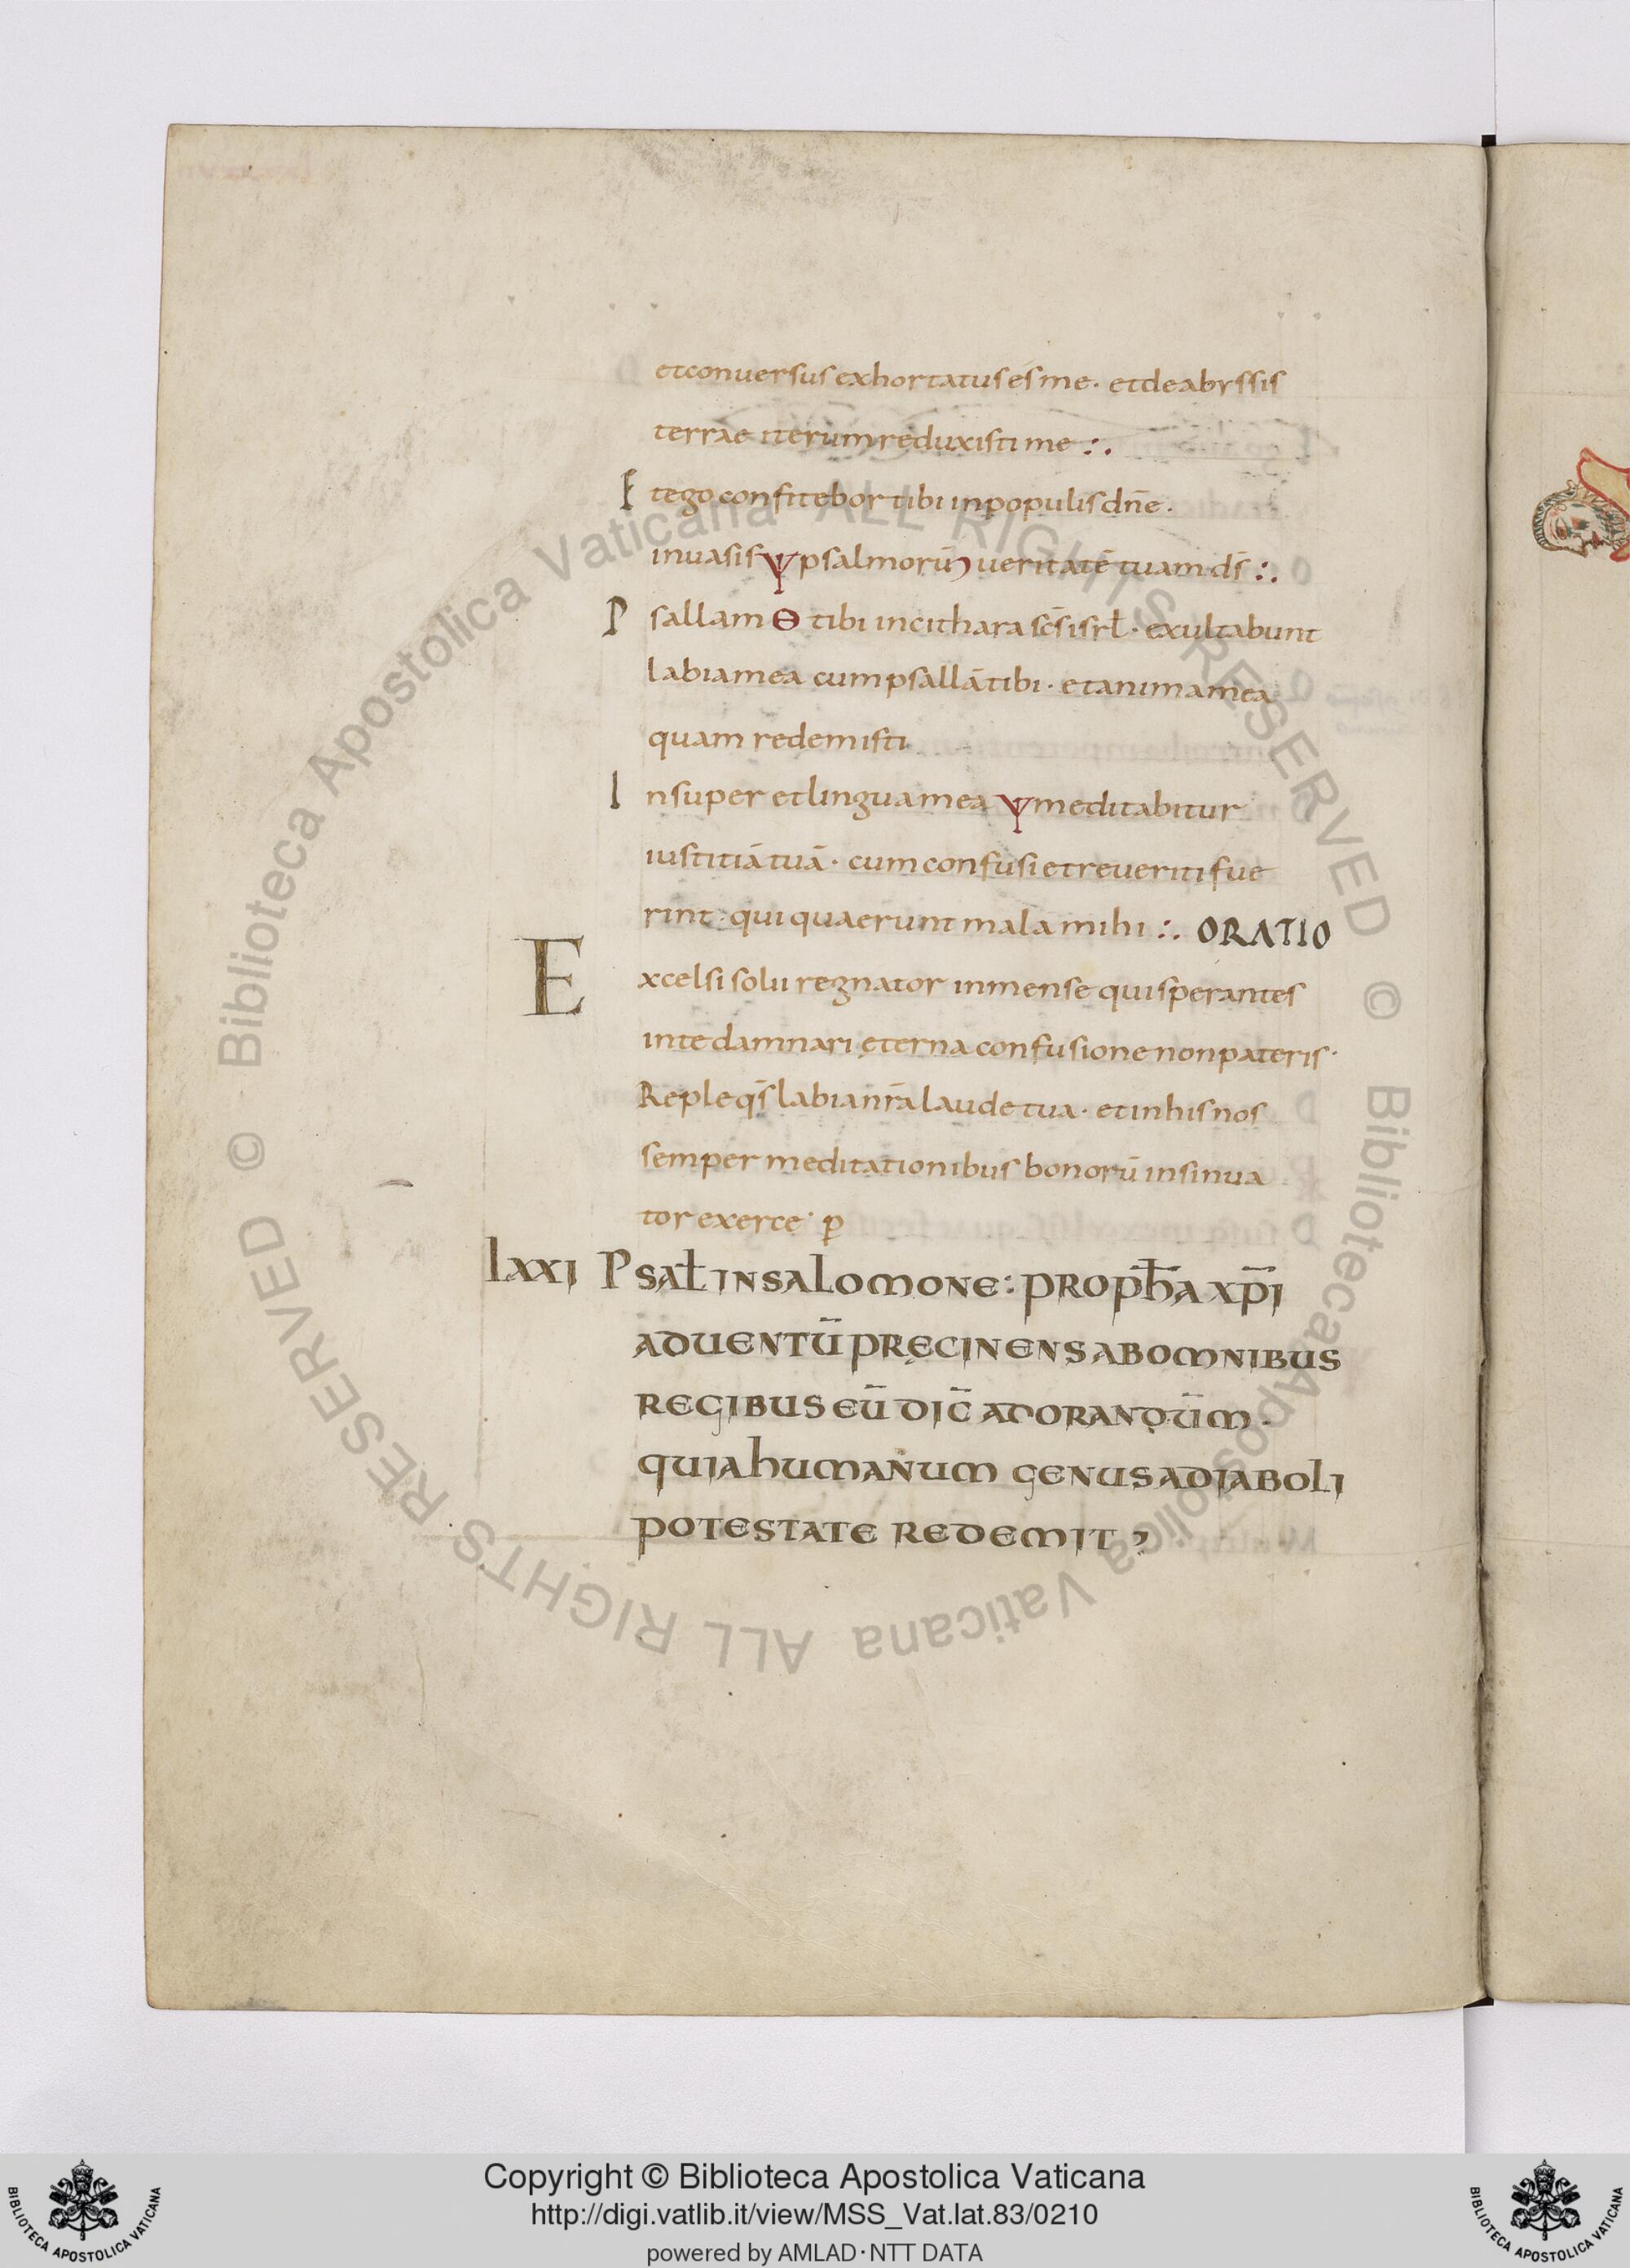 etconuersus exhortatus es me · et de abyssis
terrae iterum reduxisti me :.
Et ego confitebor tibi inpopulis dn̄e ·
inuasis ψ psalmorū uer̄itatē tuam ds̄ :.
Psallam Θ tibi incithara sc̄s isrl̄ · exultabunt
labia mea cum psallā tibi · et anima mea
quam redemisti
Insuper et lingua mea ψ meditabitur
iustitiā tuā · cum confusi et reueriti fue
rint · qui quaerunt mala mihi :. ORATIO
Excelsi solii regnator inmense qui sperantes
in te damnari ęterna confusione non pateris ·
Reple qs̄ labia nr̄a laude tua · et in his nos
semper meditationibus bonorū insinua
tor exerce · p̄
lxxi Psal̄ in salomone : proph̄a xp̄i
aduentū pręcinens ab omnibus
regibus eū dic̄ adorandūm ·
quia humanum genus a diaboli
potestate redemit ,
Copyright © Biblioteca Apostolica Vaticana
http://digi.vatlib.it/view/MSS_Vat.lat.83/0210
powered by AMLAD·NTT DATA
BIBLIOTECA APOSTOLICA VATICANA
BIBLIOTECA APOSTOLICA VATICANA
© Biblioteca Apostolica Vaticana ALL RIGHTS RESERVED
© Biblioteca Apostolica Vaticana ALL RIGHTS RESERVED